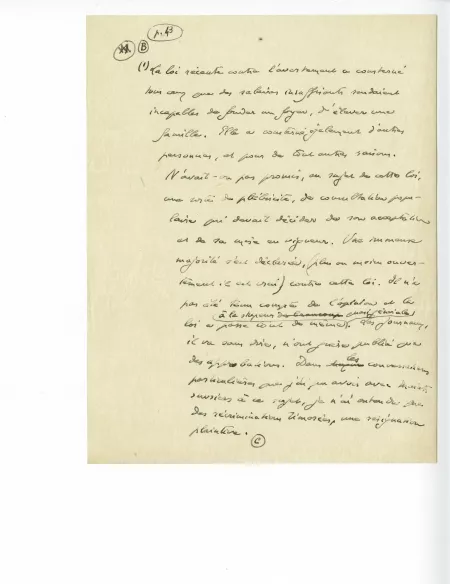 p. 43
B
(1) La loi récente contre l'avortement a consterné
tous ceux que des salaires insuffisants rendaient
incapables de fonder un foyer, d'élever une
famille. Elle a consterné également d'autres
personnes, et pour de tout autres raisons.
N'avait-on pas promis, au sujet de cette loi,
une sorte de plébiscite, de consultation popu-
laire qui devait décider de son acceptation
et de sa mise en vigueur. Une immense
majorité s'est déclarée, (plus ou moins ouver-
tement il est vrai) contre cette loi. Il n'a
pas été tenu compte de l'opinion et la
à la stupeur de beaucoup quasi générale
loi a passé tout de même. Les journaux,
il va sans dire, n'ont guère publié que
des approbations. Dans les conversations
particulières que j'ai pu avoir avec maints
à ce sujet, je n'ai entendu que
des récriminations timorées, une résignation
plaintive.
C